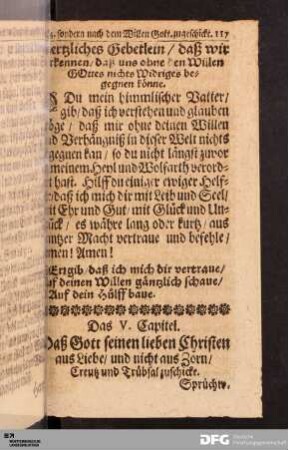 sondern nach dem Willen Gott. zugeschickt. 117
hertzliches Gebetlein / daß wir
erkennen / daß uns ohne den Willen
GOttes nichts Widriges be-
gegnen könne.
Du mein himmlischer Vatter /
gib / daß ich verstehen und glauben
möge / daß mir ohne deinen Willen
und Verhängniß in dieser Welt nichts
begegnen kan / so du nicht längst zuvor
meinem Heyl und Wolfarth verord-
net hast. Hilff du einiger ewiger Helf-
fer / daß ich mich dir mit Leib und Seel /
mit Ehr und Gut / mit Glück und Un-
glück / es währe lang oder kurtz / aus
gantzer Macht vertraue und befehle /
Amen! Amen!
Ergib / daß ich mich dir vertraue /
Auf deinen Willen gäntzlich schaue /
Auf dein Hülff baue.
Das V. Capitel.
Daß Gott seinen lieben Christen
aus Liebe / und nicht aus Zorn /
Creutz und Trübsal zuschicke.
Sprüche.
DFG Deutsche Forschungsgemeinschaft